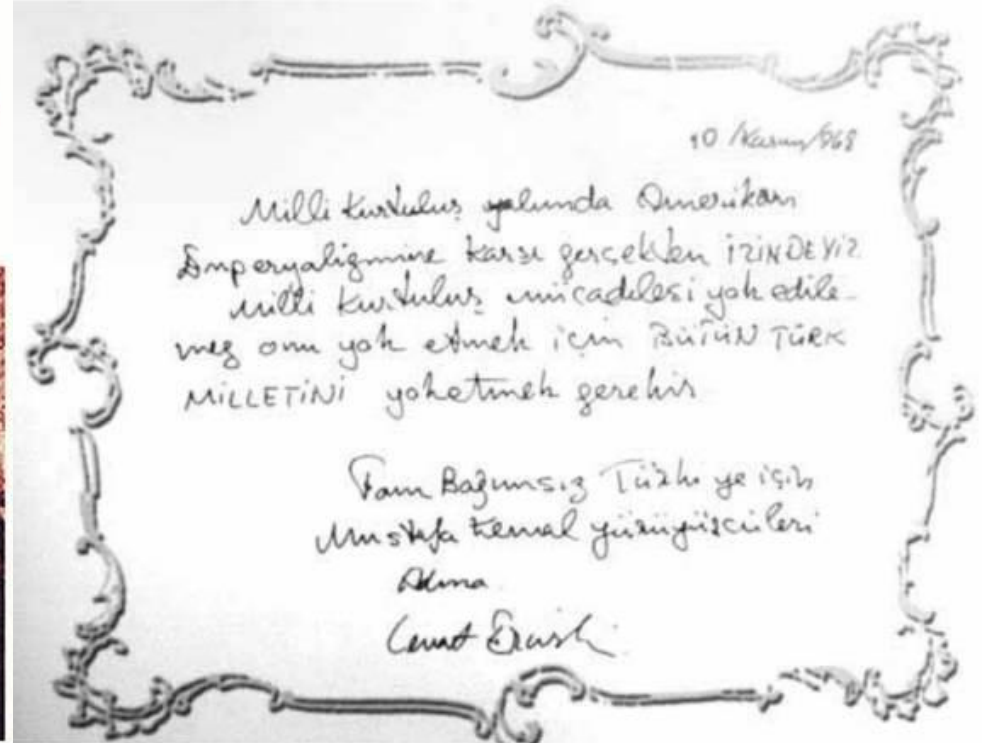 10 /Kasım/968
Milli Kurtuluş yolunda Amerikan
Emperyalizmine karşı gerçekten İZİNDEYİZ
Milli Kurtuluş mücadelesi yok edile-
mez onu yok etmek için BÜTÜN TÜRK
MİLLETİNİ yoketmek gerekir
Tam Bağımsız Türkiye için
Mustafa Kemal yürüyüşçüleri
Adına